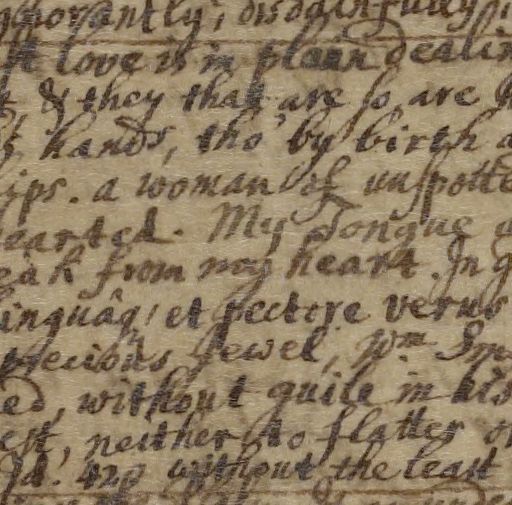 disdainfully,
love is in plain dealin
& they that are so are
hands, tho' by birth a
ips. a woman of unspotte
earted. My Tongue
eak from my heart. In
inguâq; et pectore verus
precious Jewel, Wm
ed, without guile in his
est, neither to flatter or
Id. 420 without the least